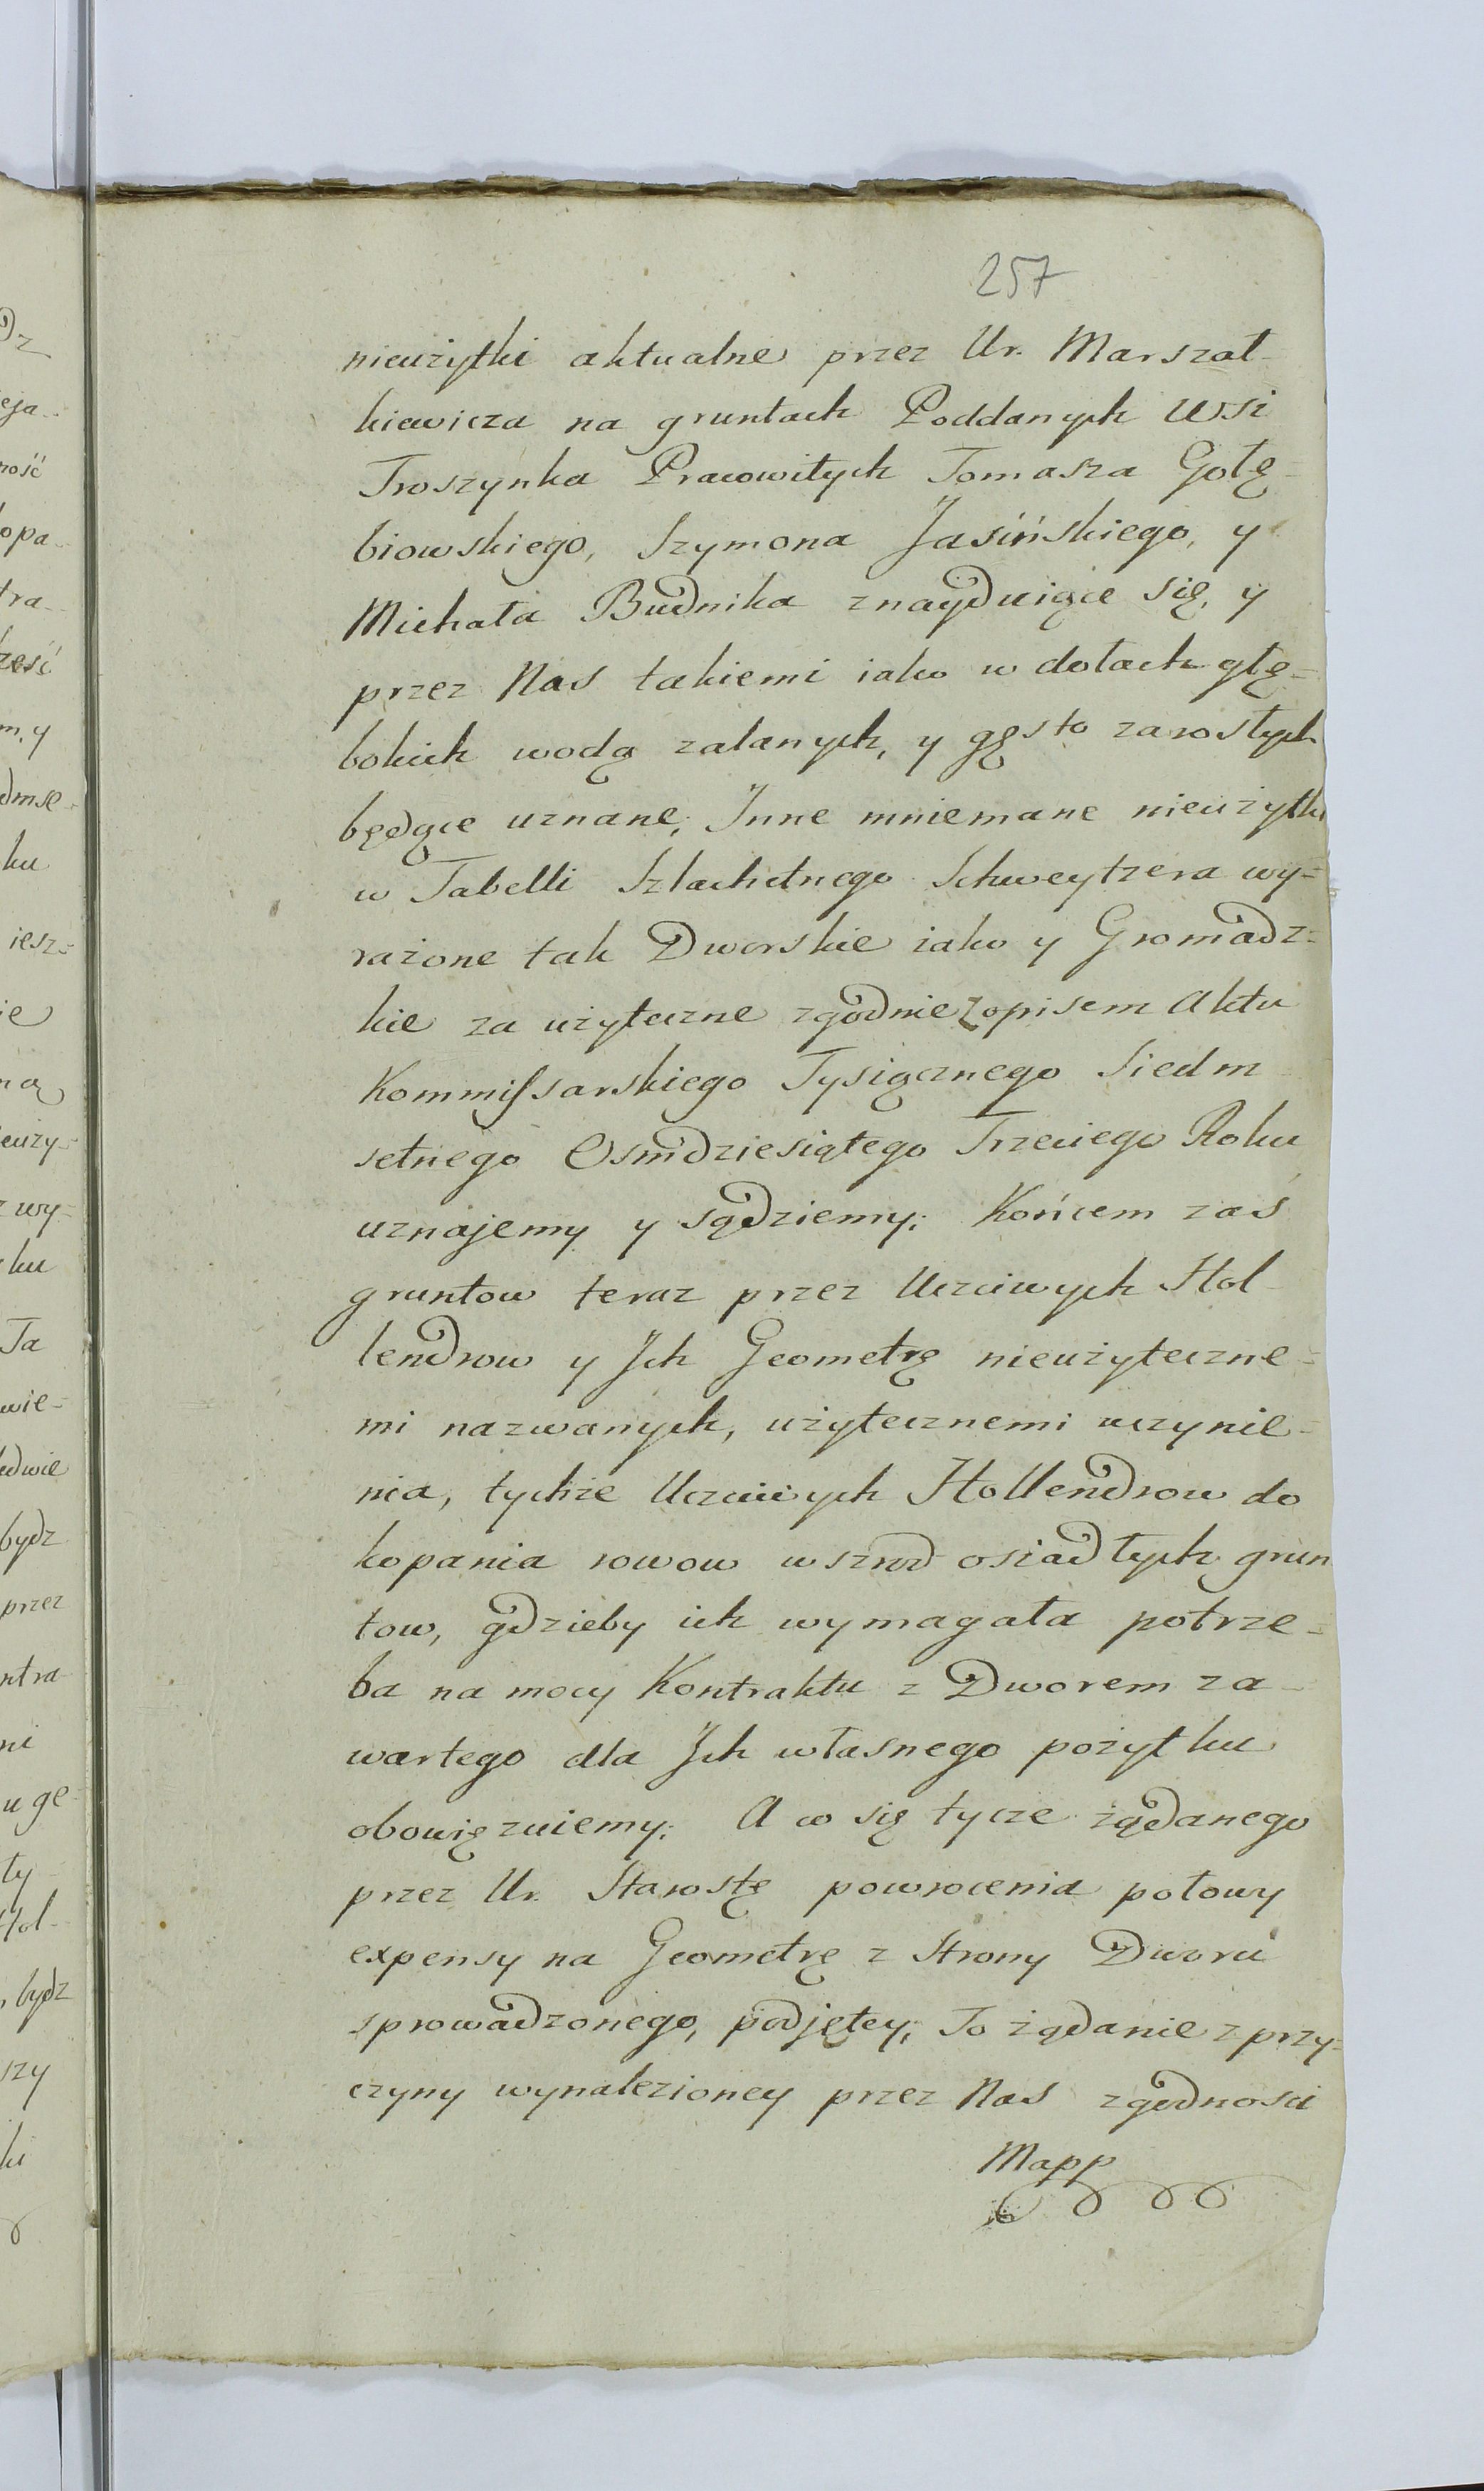 257
nieużytki aktualne przez Ur. Marszał-
kiewicza na gruntach Poddanych Wsi
Troszynka Pracowitych Tomasza Gołę-
biowskiego, Szymona Jasińskiego, y
Michała Budnika znayduiące się, y
przez Nas takiemi iako w dołach głę=
bokich wodą zalanych, y gęsto zarosłych
będące uznane; Inne mniemane nieużytki
w Tabelli Szlachetnego Schweytzera wy=
rażone tak Dworskie iako y Gromadz=
kie za użyteczne zgodnie z opisem Aktu
Kommissarskiego Tysiącznego Siedm
setnego Osmdziesiątego Trzeciego Roku
uznajemy y sądziemy; Końcem zaś
gruntow teraz przez Uczciwych Hol-
lendrow y Jch Geometrę nieużyteczne=
mi nazwanych, użytecznemi uczynie=
nia, tychże Uczciwych Hollendrow do
kopania rowow wszrod osiadłych grun
tow, gdzieby ich wymagała potrze=
ba na mocy Kontraktu z Dworem za-
wartego dla Jch własnego pożytku
obowięzuiemy; A co się tycze żądanego
przez Ur. Starostę powrocenia połowy
expensy na Geometrę z Strony Dworu
sprowadzonego, podjętey; To żądanie z przy=
czyny wynalezioney przez Nas zgodnosci
Mapp
Dz
eja-
ność
opa-
tra-
m, y
dmse-
ku
iesz=
ie
wy=
ku
Ta
wie=
bydz
przez
ntra
ni
u ge=
ty
Hol-
bydz
szy
ki